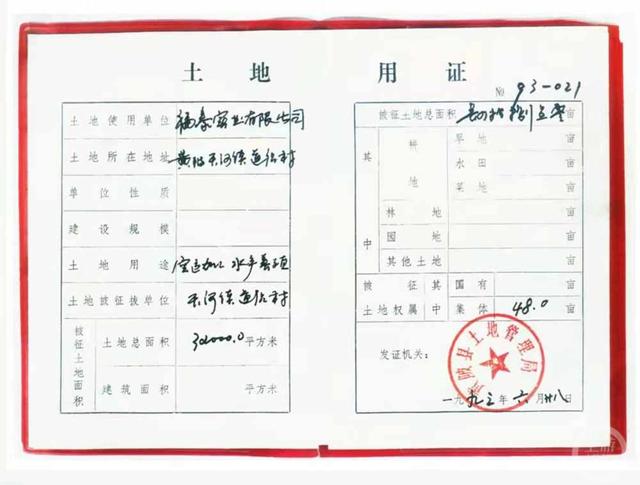 土地用证
№ 93-021
土地使用单位 福泰实业有限公司
土地所在地址 黄陂天河镇道伦村
单位性质
建设规模
土地用途 水产养殖
土地被征拨单位 天河镇道伦村
被征土地面积 土地总面积 32000.0 平方米
建筑面积 平方米
被征土地总面积 亩
其中 耕地 旱地 亩
水田 亩
菜地 亩
林地 亩
园地 亩
其他土地 亩
被征土地权属 其中 国有 亩
集体 48.0 亩
发证机关:
黄陂县土地管理局
一九九三年六月廿八日